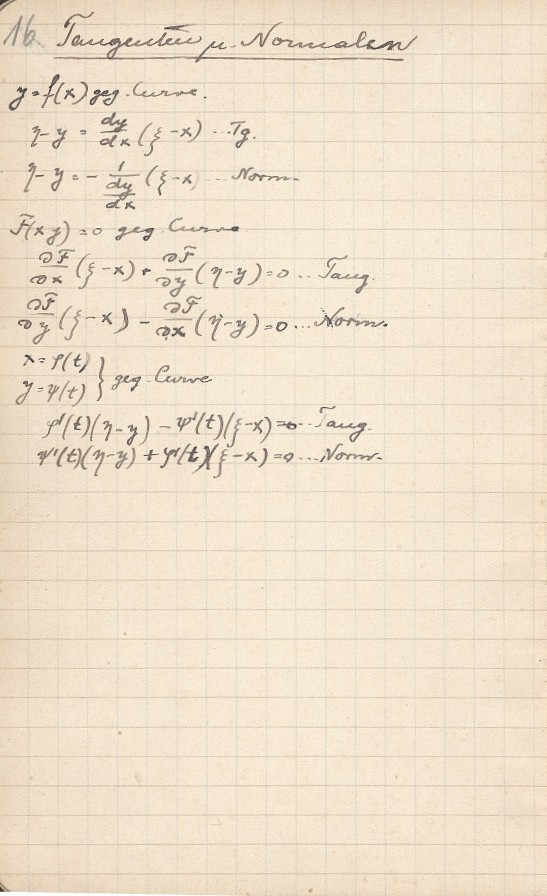 16 Tangenten u. Normalen
y = f(x) geg. Curve.
η-y = dy/dx (ξ-x) ... Tg.
η-y = - 1/(dy/dx) (ξ-x) ... Norm.
F(xy) = 0 geg. Curve
∂F/∂x (ξ-x) + ∂F/∂y (η-y) = 0 ... Tang.
∂F/∂y (ξ-x) - ∂F/∂x (η-y) = 0 ... Norm.
x = φ(t)
y = ψ(t) } geg. Curve
φ'(t)(η-y) - ψ'(t)(ξ-x) = 0 ... Tang.
ψ'(t)(η-y) + φ'(t)(ξ-x) = 0 ... Norm.